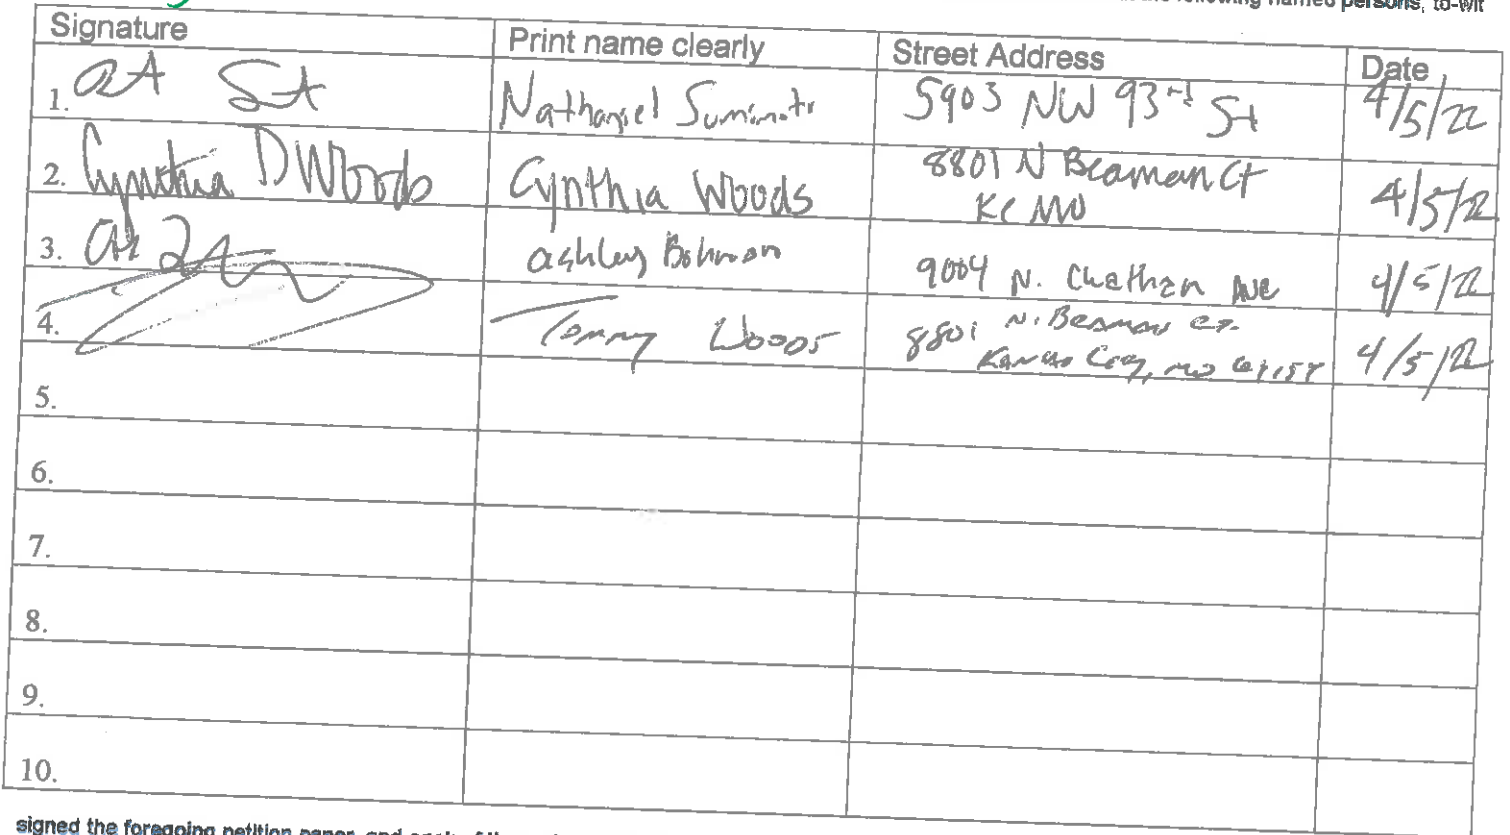 following named persons, to-wit
Signature Print name clearly Street Address Date
1. Nathaniel 5903 NW 93rd St 4/5/22
2. Cynthia D Woods Cynthia Woods 8801 N Beaman Ct 4/5/22
KC MO
3. ashley Bohman 9004 N. Chathan Ave 4/5/22
4. Tommy Woods 8801 N. Beaman Ct. 4/5/22
Kansas City, MO
5.
6.
7.
8.
9.
10.
signed the foregoing petition paper, and each of